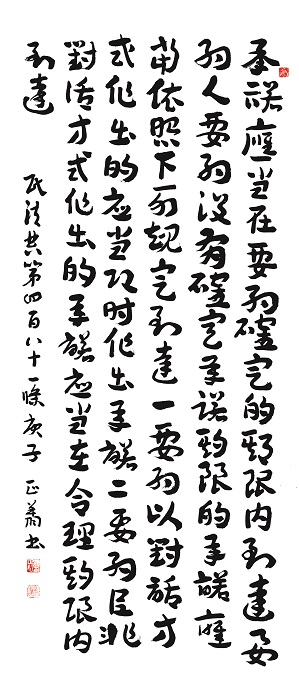 承諾應当在要約確定的期限内到達要
約人要約没有確定承諾期限的承諾應
當依照下列規定到達一要約以對話方
式作出的应當即时作出承諾二要約以非
對话方式作出的承諾应當在合理期限内
到達
民法典第四百八十一條庚子 正萧书